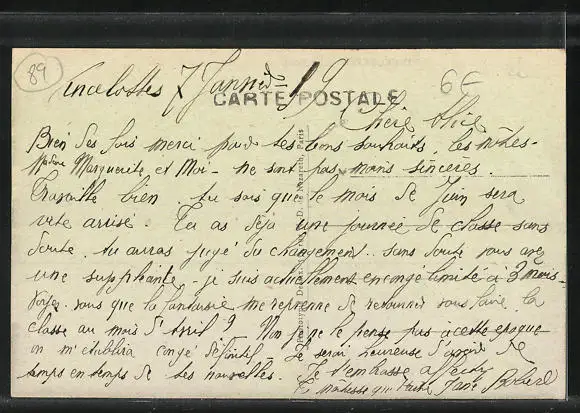 89
7 Janvier 19
6€
CARTE POSTALE
Chère Alice
Bien des fois merci pour tes bons souhaits. Les nôtres -
Marguerite et Moi - ne sont pas moins sincères.
Travaille bien. tu sais que le mois de Juin sera
vite arrivé. Tu as déjà une journée de classe sans
doute. tu auras jugé du changement. sans doute vous avez
une suppléante. je suis actuellement en congé limité à 3 mois.
vous que la fantaisie me reprenne de retourner vous faire la
classe au mois d'Avril ? Non je ne le pense pas à cette époque
on m'établira congé définitif. Je serai heureuse d'avoir de
temps en temps de tes nouvelles. Je t'embrasse
Ta maîtresse que Jane
D. de Nazareth, Paris